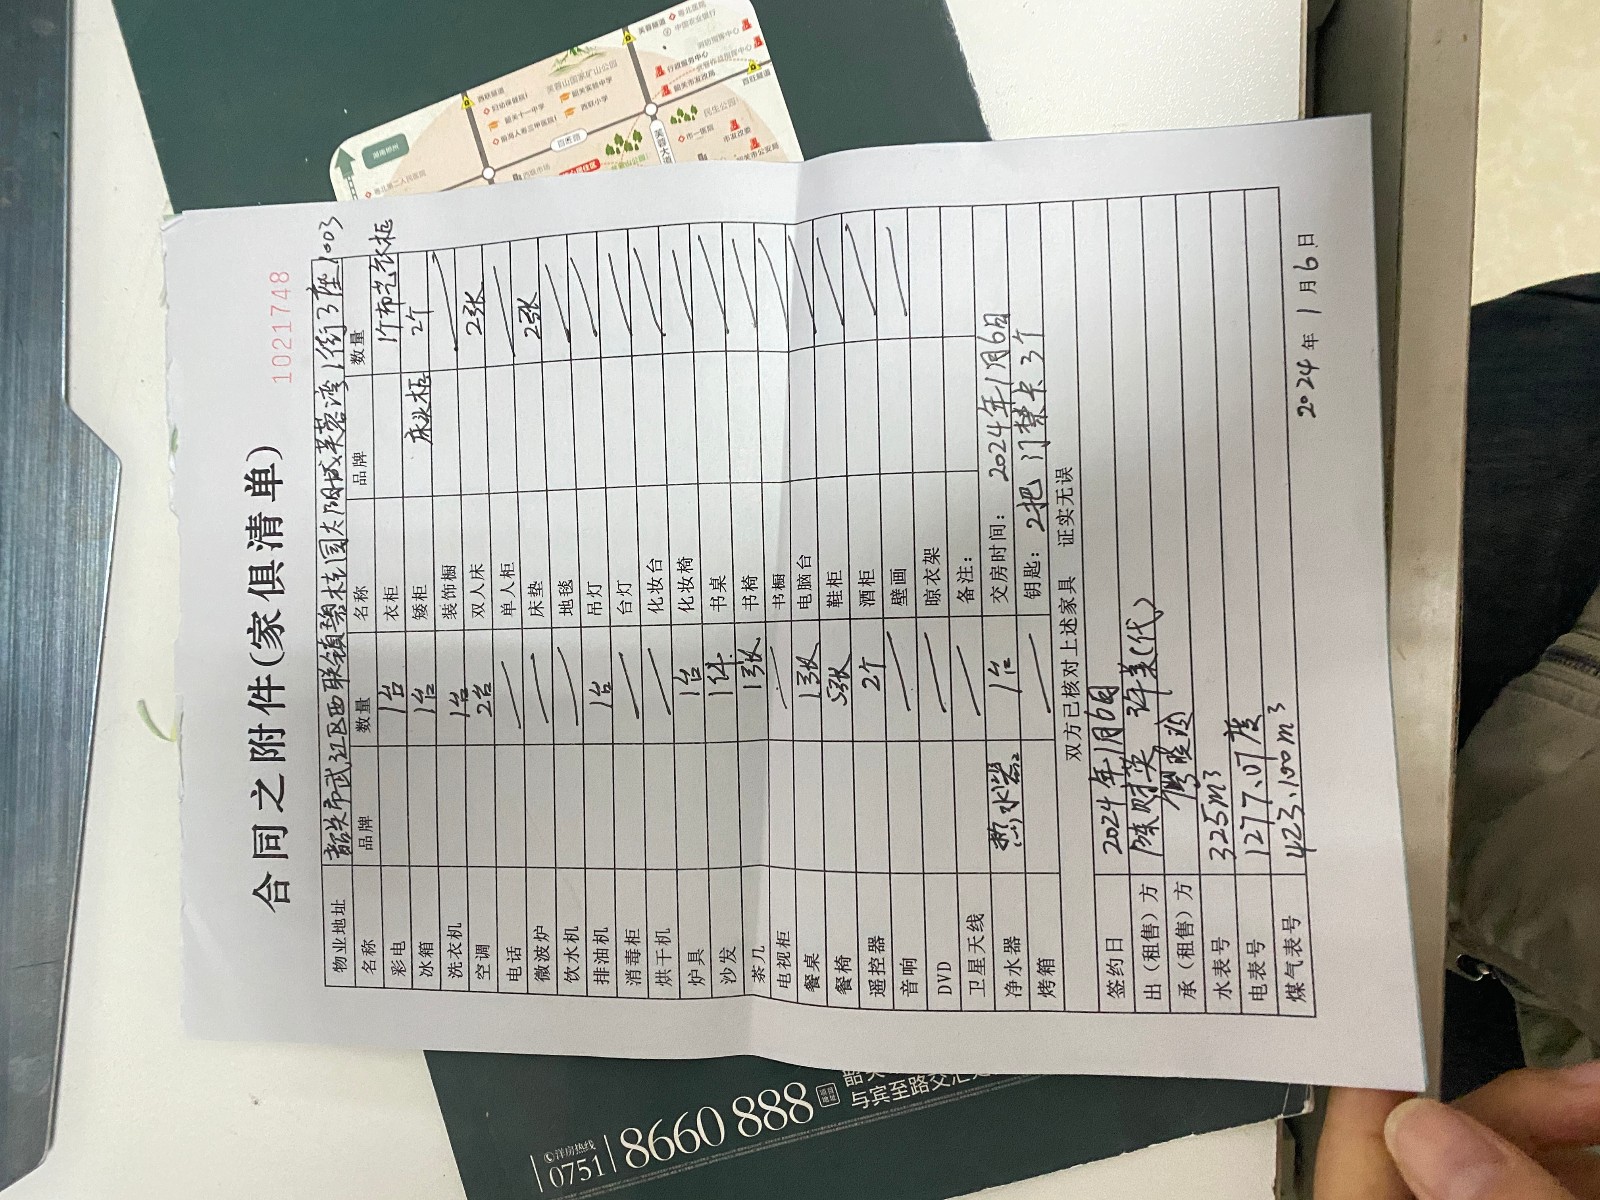 合同之附件(家俱清单)
1021748
物业地址 韶关市武江区西联镇碧桂园太阳城芙蓉湾1街3座1003
名称 品牌 数量 名称 品牌 数量
彩电 1台 衣柜 1个布艺衣柜
冰箱 1台 矮柜 床头柜 2个
洗衣机 1台 装饰橱
空调 2台 双人床 2张
电话 单人柜
微波炉 床垫 2张
饮水机 地毯
排油机 1台 吊灯
消毒柜 台灯
烘干机 化妆台
炉具 1台 化妆椅
沙发 1件 书桌
茶几 1张 书椅
电视柜 书橱
餐桌 1张 电脑台
餐椅 5张 鞋柜
遥控器 2个 酒柜
音响 壁画
DVD 晾衣架
卫星天线 备注:
净水器 热水器 1台 交房时间: 2024年1月6日
烤箱 钥匙: 2把 门禁卡3个
双方已核对上述家具 证实无误
签约日 2024年1月6日
出(租售)方 陈财英 许美(代)
承(租售)方
水表号 325m³
电表号 1277.07度
煤气表号 423.100m³
2024年1月6日
洋房热线
0751 8660 888
与宾至路交汇
芙蓉山国家矿山公园
西联小学
韶关十一中学
行政服务中心
中国农业银行
粤北第二人民医院
市一医院